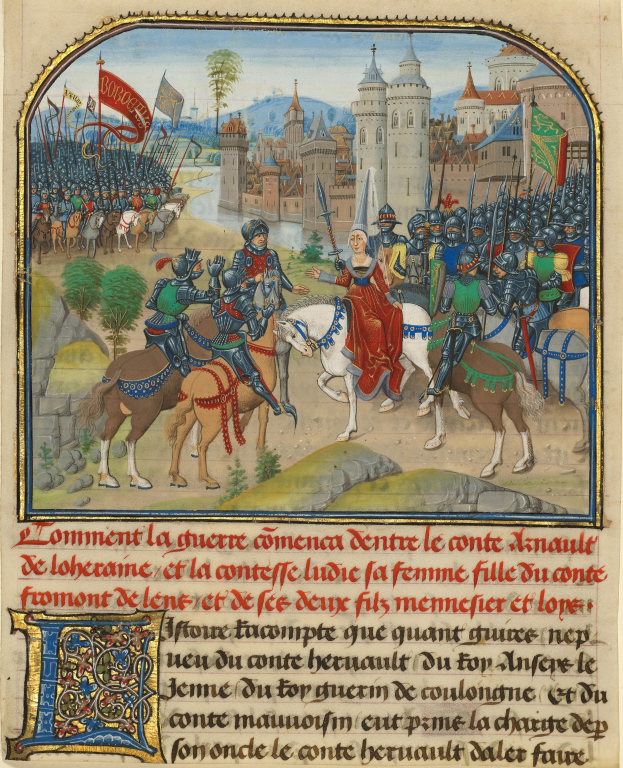 Comment la guerre cōmenca dentre le conte Arnault
de loheraine / et la contesse ludie sa femme fille du conte
fromont de lens / et de ses deux filz mennesier et loys.
LIstoire Racompte que quant guires nep
ueu du conte heruault / du Roy Anseys le
Jenne / du Roy guerin de coulongne / et du
conte mauuoisin / eut prins la charge de p
son oncle le conte heruault daler faire